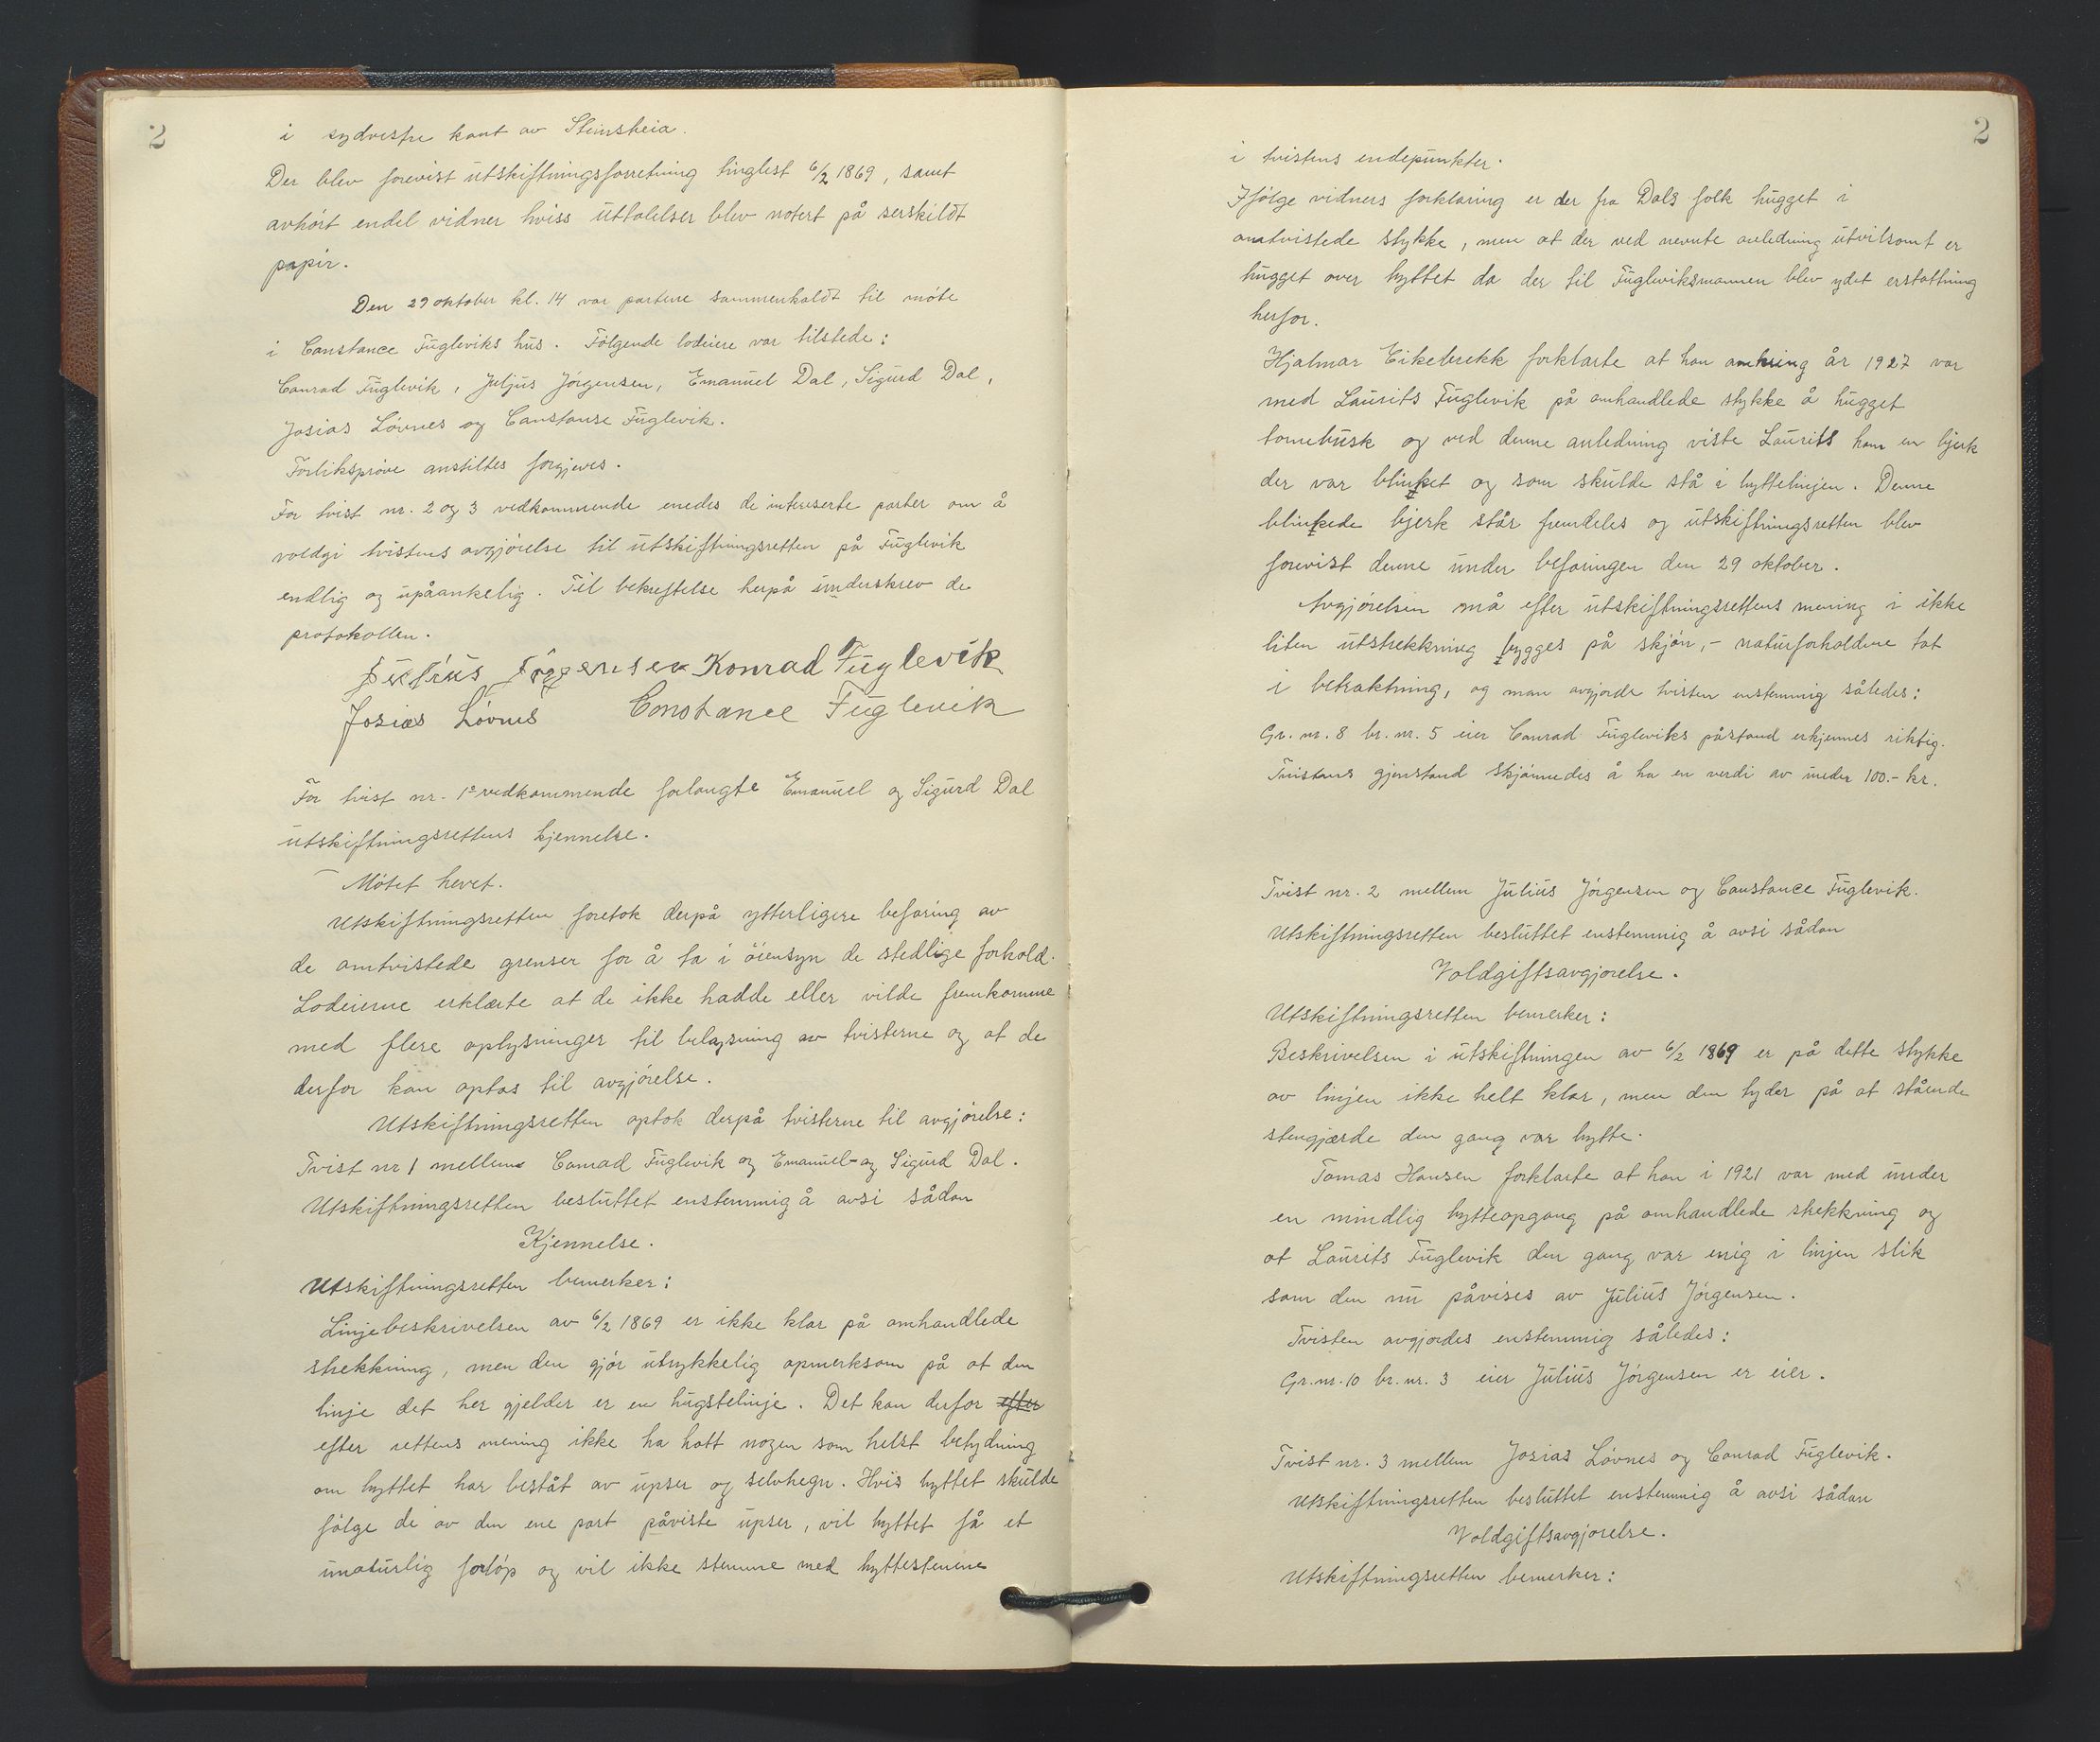 2
i sydvestre kant av Steinsheia.
Der blev forevist utskiftningsforretning tinglest 6/2 1869, samt
avhørt endel vidner hviss uttalelser blev notert på serskildt
papir.
Den 29 oktober kl. 14 var partene sammenkaldt til møte
i Constance Fugleviks hus. Følgende lodeiere var tilstede:
Conrad Fuglevik, Juljus Jørgensen, Emanuel Dal, Sigurd Dal,
Josias Løvnes og Constanse Fuglevik.
Forliksprøve anstiltes forgjeves.
For tvist nr. 2 og 3 vedkommende enedes de interserte parter om å
voldgi tvistens avgjørelse til utskiftningsretten på Fuglevik
endlig og upåankelig. Til bekreftelse herpå underskrev de
protokollen.
Juljus Jørgensen Konrad Fuglevik
Josias Løvnes Constance Fuglevik
For tvist nr. 1 vedkommende forlangte Emanuel og Sigurd Dal
utskiftningsrettens kjennelse.
Møtet hevet.
Utskiftningsretten foretok derpå ytterligere befaring av
de omtvistede grenser for å ta i øiensyn de stedlige forhold.
Lodeierne erklærte at de ikke hadde eller vilde fremkomme
med flere oplysninger til belysning av tvisterne og at de
derfor kan optas til avgjørelse.
Utskiftningsretten optok derpå tvisterne til avgjørelse:
Tvist nr 1 mellem Conrad Fuglevik og Emanuel- og Sigurd Dal.
Utskiftningsretten besluttet enstemmig å avsi sådan
Kjennelse.
Utskiftningsretten bemerker:
Linjebeskrivelsen av 6/2 1869 er ikke klar på omhandlede
strekkning, men den gjør utrykkelig opmerksom på at den
linje det her gjelder er en hugstelinje. Det kan derfor efter
efter rettens mening ikke ha hatt nogen som helst betydning
om byttet har bestått av upser og selvhegn. Hvis byttet skulde
følge de av den ene part påviste upser, vil byttet få et
unaturlig forløp og vil ikke stemme med byttestenene
2
i tvistens endepunkter.
Ifølge vidners forklaring er der fra Dals folk hugget i
omtvistede stykke, men at der ved nevnte anledning utvilsomt er
hugget over byttet da der til Fugleviksmannen blev ydet erstattning
herfor.
Hjalmar Eikebrekk forklarte at han omkring år 1927 var
med Laurits Fuglevik på omhandlede stykke å hugget
tornebusk og ved denne anledning viste Laurits ham en bjerk
der var blinket og som skulde stå i byttelinjen. Denne
blinkede bjerk står fremdeles og utskiftningsretten blev
forevist denne under befaringen den 29 oktober.
Avgjørelsen må efter utskiftningsrettens mening i ikke
liten utstrekkning bygges på skjøn, - naturforholdene tat
i betraktning, og man avgjorde tvisten enstemmig således:
Gr. nr. 8 br. nr. 5 eier Conrad Fugleviks påstand erkjennes riktig.
Tvistens gjenstand skjønnedes å ha en verdi av under 100.- kr.
Tvist nr. 2 mellem Julius Jørgensen og Constance Fuglevik.
Utskiftningsretten besluttet enstemmig å avsi sådan
Voldgiftsavgjørelse.
Utskiftningsretten bemerker:
Beskrivelsen i utskiftningen av 6/2 1869 er på dette stykke
av linjen ikke helt klar, men den tyder på at stående
stengjærde den gang var bytte.
Tomas Hansen forklarte at han i 1921 var med under
en mindlig bytteopgang på omhandlede strekkning og
at Laurits Fuglevik den gang var enig i linjen slik
som den nu påvises av Julius Jørgensen.
Tvisten avgjordes enstemmig således:
Gr. nr. 10 br. nr. 3 eier Julius Jørgensen er eier.
Tvist nr. 3 mellem Josias Løvnes og Conrad Fuglevik.
Utskiftningsretten besluttet enstemmig å avsi sådan
Voldgiftsavgjørelse.
Utskiftningsretten bemerker: